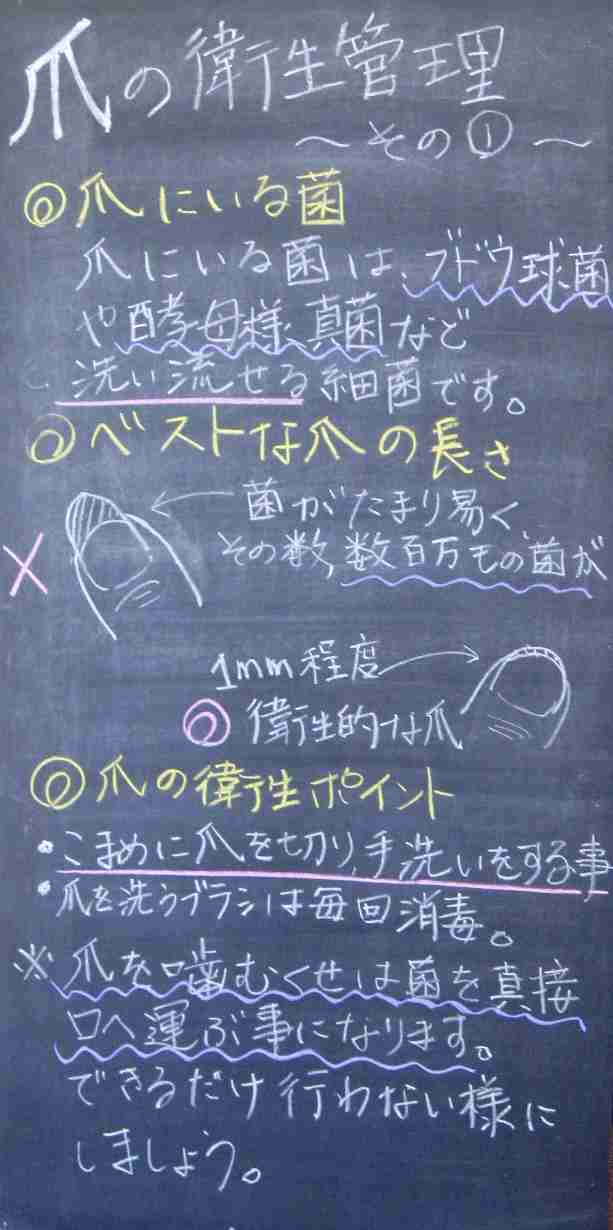 爪の衛生管理
～その①～
◎爪にいる菌
爪にいる菌は、ブドウ球菌
や酵母様、真菌など
洗い流せる細菌です。
◎ベストな爪の長さ
菌がたまり易く
その数,数百万もの菌が
×
1mm程度
◎衛生的な爪
◎爪の衛生ポイント
・こまめに爪を切り、手洗いをする事
・爪を洗うブラシは毎回消毒。
※爪を噛むくせは菌を真接
口へ運ぶ事になります。
できるだけ行わない様に
しましょう。